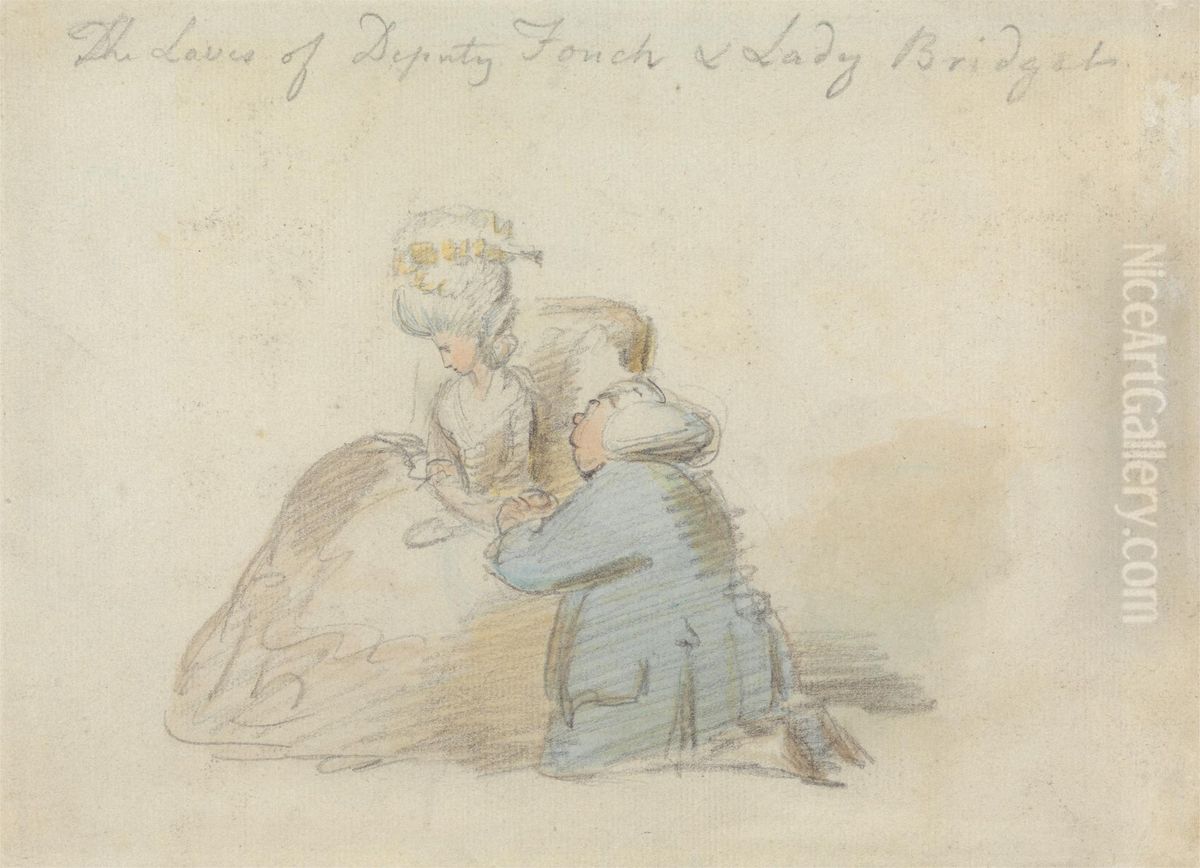 The Loves of Deputy Fonch & Lady Bridget
NiceArtGallery.com